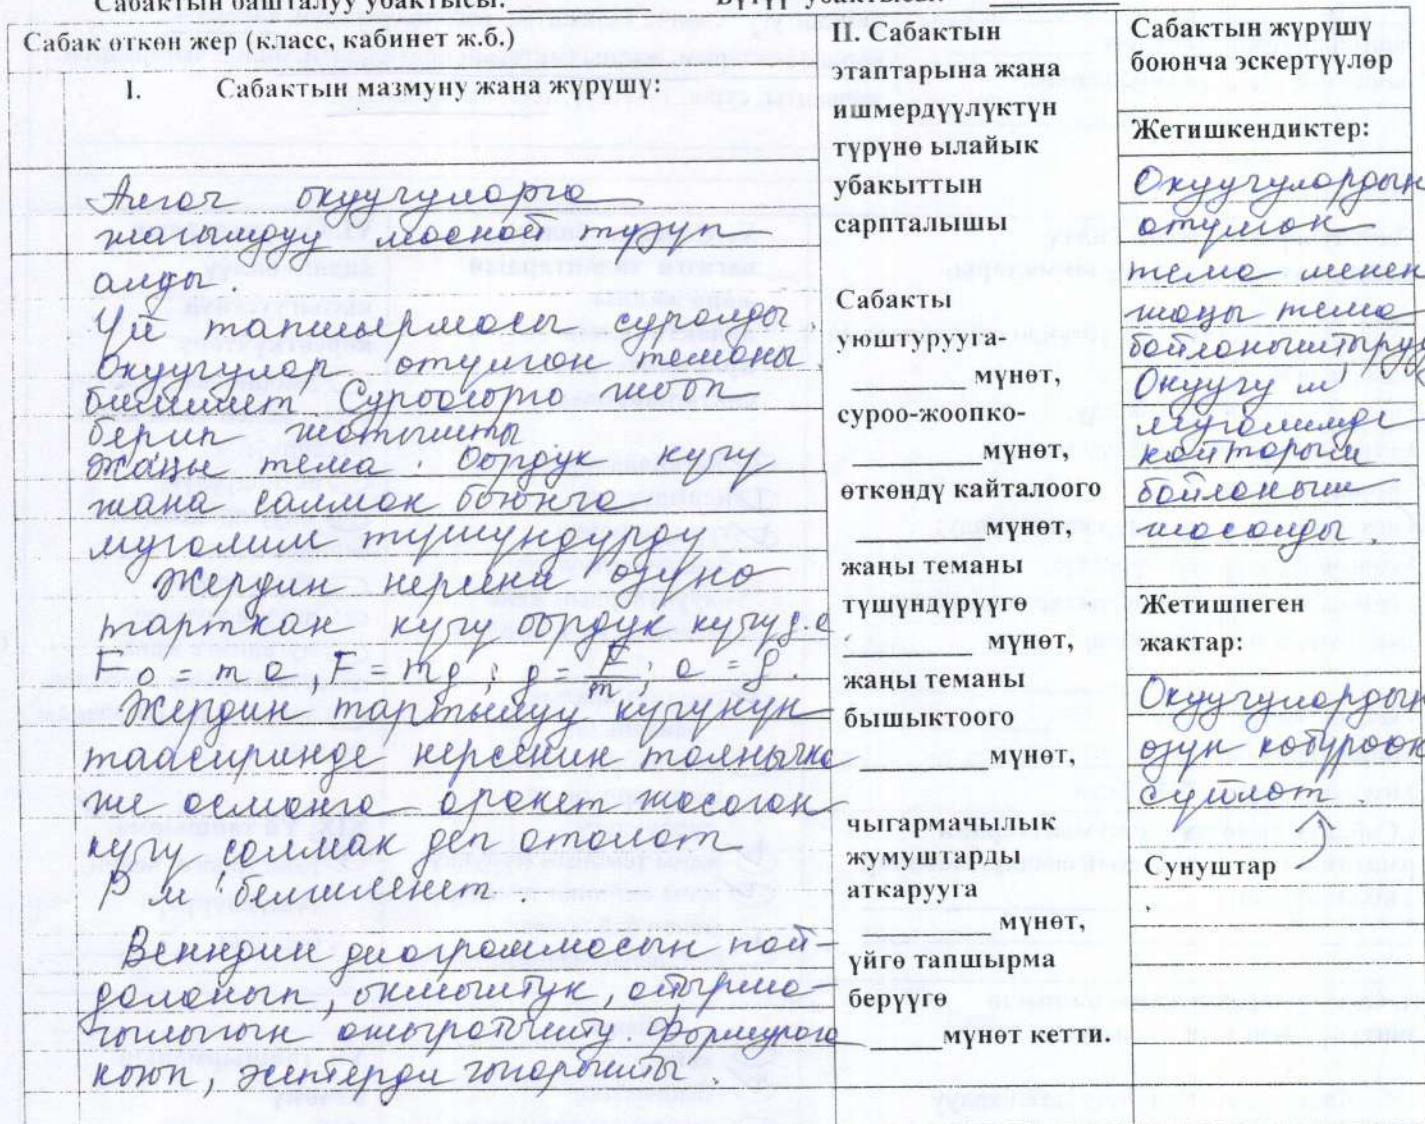 Сабактын башталуу убактысы:
Бүтүү убактысы:
Сабак өткөн жер (класс, кабинет ж.б.)
I. Сабактын мазмуну жана жүрүшү:
Алгач окуучуларга
жагымдуу маанай түзүп
алды.
Үй тапшырмасы суралды.
Окуучулар өтүлгөн теманы
билишет Суроолорго жооп
берип жатышты
Жаңы тема: Оордук күчү
жана салмак боюнча
мугалим түшүндүрдү
Жердин нерсени өзүнө
тарткан күчү оордук күчү д.а.
Fo = ma, F = mg; g = F/m; a = g.
Жердин тартылуу күчүнүн
таасиринде нерсенин таянычка
же асманга аракет жасаган
күчү салмак деп аталат
P м белгиленет.
Венндин диаграммасын пай-
даланып, окшоштук, айырма-
чылыгын ажыратышты. Формулага
коюп, эсептерди чыгарышты.
II. Сабактын
этаптарына жана
ишмердүүлүктүн
түрүнө ылайык
убакыттын
сарпталышы
Сабакты
уюштурууга-
мүнөт,
суроо-жоопко-
мүнөт,
өткөндү кайталоого
мүнөт,
жаңы теманы
түшүндүрүүгө
мүнөт,
жаңы теманы
бышыктоого
мүнөт,
чыгармачылык
жумуштарды
аткарууга
мүнөт,
үйгө тапшырма
берүүгө
мүнөт кетти.
Сабактын жүрүшү
боюнча эскертүүлөр
Жетишкендиктер:
Окуучулардын
өтүлгөн
тема менен
жаңы тема
байланыштыруу
Окуучу м/н
мугалимде
кайтарым
байланыш
жасалды.
Жетишпеген
жактар:
Окуучулардын
өзүн көбүрөөк
сүйлөт.
Сунуштар